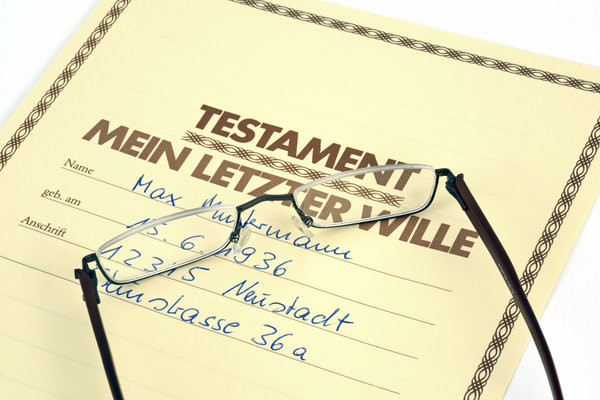 TESTAMENT
MEIN LETZTER WILLE
Name Max Mustermann
geb. am 15. 6. 1936
Anschrift 12315 Neustadt
36a